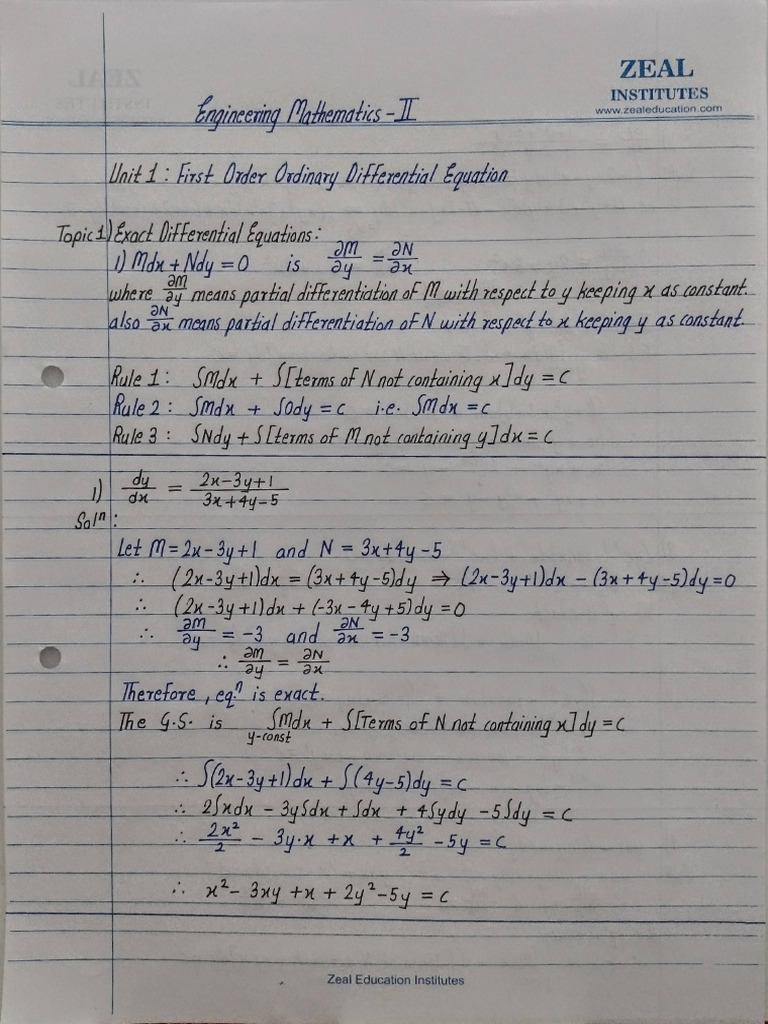 ZEAL
INSTITUTES
www.zealeducation.com
Engineering Mathematics - II
Unit 1 : First Order Ordinary Differential Equation
Topic 1) Exact Differential Equations :
1) Mdx + Ndy = 0 is ∂M/∂y = ∂N/∂x
where ∂M/∂y means partial differentiation of M with respect to y keeping x as constant.
also ∂N/∂x means partial differentiation of N with respect to x keeping y as constant.
Rule 1 : ∫Mdx + ∫[terms of N not containing x]dy = c
Rule 2 : ∫Mdx + ∫0dy = c i.e. ∫Mdx = c
Rule 3 : ∫Ndy + ∫[terms of M not containing y]dx = c
1) dy/dx = (2x-3y+1)/(3x+4y-5)
Solⁿ :
Let M = 2x-3y+1 and N = 3x+4y-5
∴ (2x-3y+1)dx = (3x+4y-5)dy ⇒ (2x-3y+1)dx - (3x+4y-5)dy = 0
∴ (2x-3y+1)dx + (-3x-4y+5)dy = 0
∴ ∂M/∂y = -3 and ∂N/∂x = -3
∴ ∂M/∂y = ∂N/∂x
Therefore, eq.ⁿ is exact.
The G.S. is ∫Mdx + ∫[Terms of N not containing x]dy = c
y-const
∴ ∫(2x-3y+1)dx + ∫(4y-5)dy = c
∴ 2∫xdx - 3y∫dx + ∫dx + 4∫ydy - 5∫dy = c
∴ 2x²/2 - 3y·x + x + 4y²/2 - 5y = c
∴ x² - 3xy + x + 2y² - 5y = c
Zeal Education Institutes